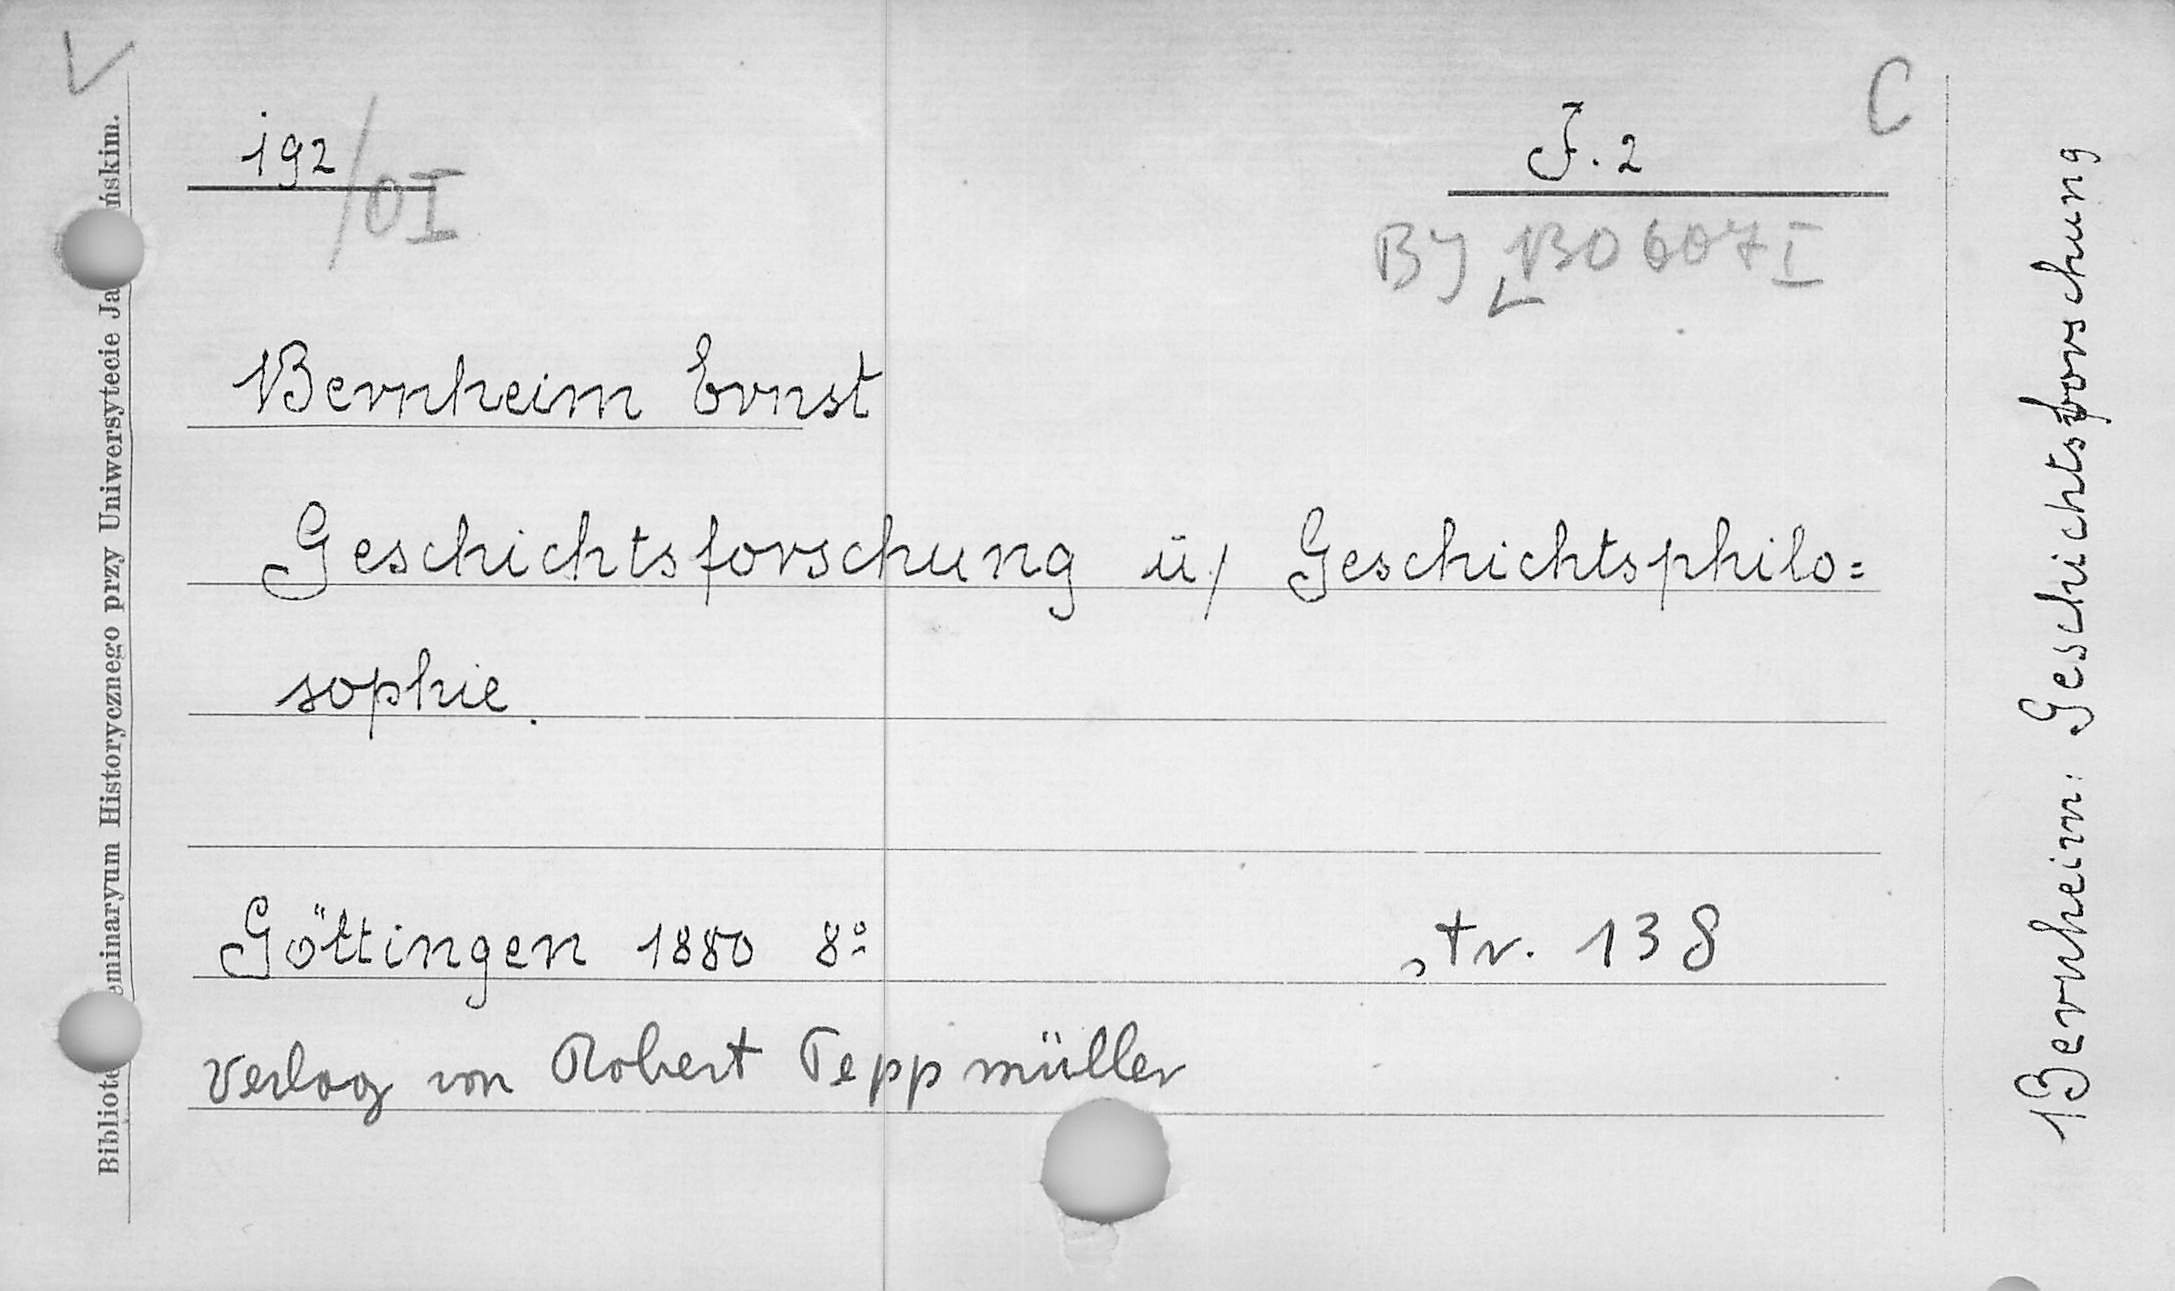 V
C
192/OI
J. 2
BJ B0607 I
Bernheim Ernst
Geschichtsforschung ü/ Geschichtsphilo=
sophie.
Göttingen 1880 8°
str. 138
Verlag von Robert Peppmüller
Bibliote eminaryum Historycznego przy Uniwersytecie Ja ńskim.
Bernheim: Geschichtsforschung